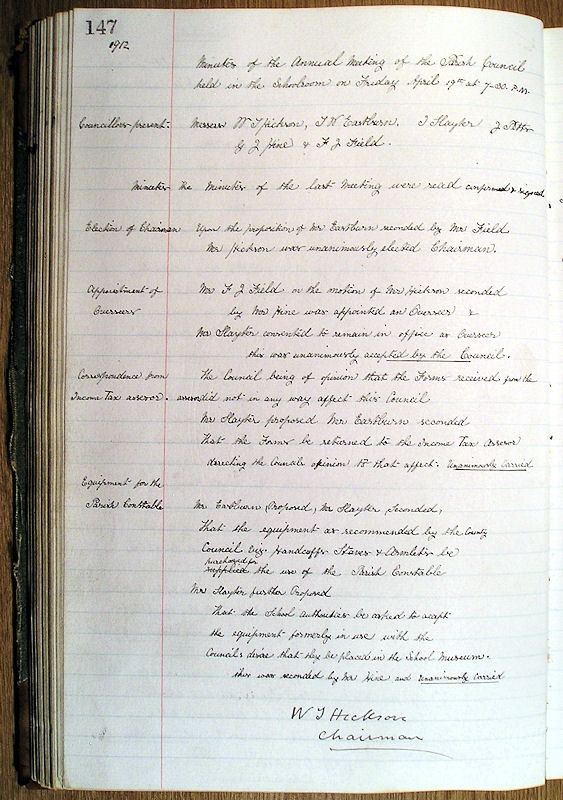 147
1912
Minutes of the Annual Meeting of the Parish Council
held in the Schoolroom on Friday April 19th at 7-30 P.M.
Councillors present:- Messrs W J Hickson, T W Eastburn. J Slayter J Potter
G J Hine & F J Field.
Minutes The Minutes of the last Meeting were read confirmed & signed
Election of Chairman Upon the proposition of Mr Eastburn seconded by Mr Field
Mr Hickson was unanimously elected Chairman.
Appointment of Mr F J Field on the motion of Mr Hickson seconded
Overseers by Mr Hine was appointed an Overseer &
Mr Slayter consented to remain in office as Overseer
this was unanimously accepted by the Council.
Correspondence from The Council being of opinion that the Forms received from the
Income Tax assessor. assessor did not in any way affect this Council
Mr Slayter proposed Mr Eastburn seconded
That the Forms be returned to the Income Tax Assessor
directing the Councils opinion to that affect. Unanimously Carried
Equipment for the
Parish Constable Mr Eastburn Proposed, Mr Slayter Seconded,
That the equipment as recommended by the County
Council Viz: Handcuffs Staves & Armlets be
purchased for
supplied the use of the Parish Constable
Mr Slayter further Proposed
That the School authorities be asked to accept
the equipment formerly in use with the
Councils desire that they be placed in the School Museum.
this was seconded by Mr Hine and Unanimously Carried
W J Hickson
Chairman